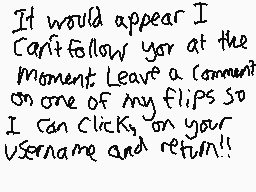 It would appear I
can't follow yor at the
moment. Leave a comment
on one of my flips so
I can click, on your
username and return!!